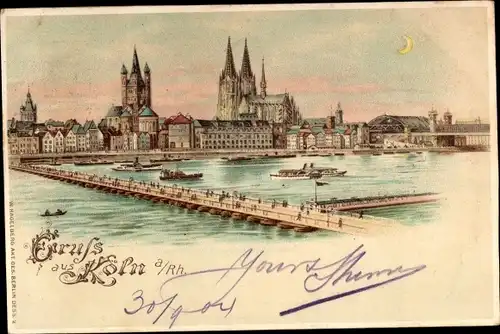 Gruss
aus Köln a/Rh.
Yours
30/9 04
W. HAGELBERG AKT. GES. BERLIN